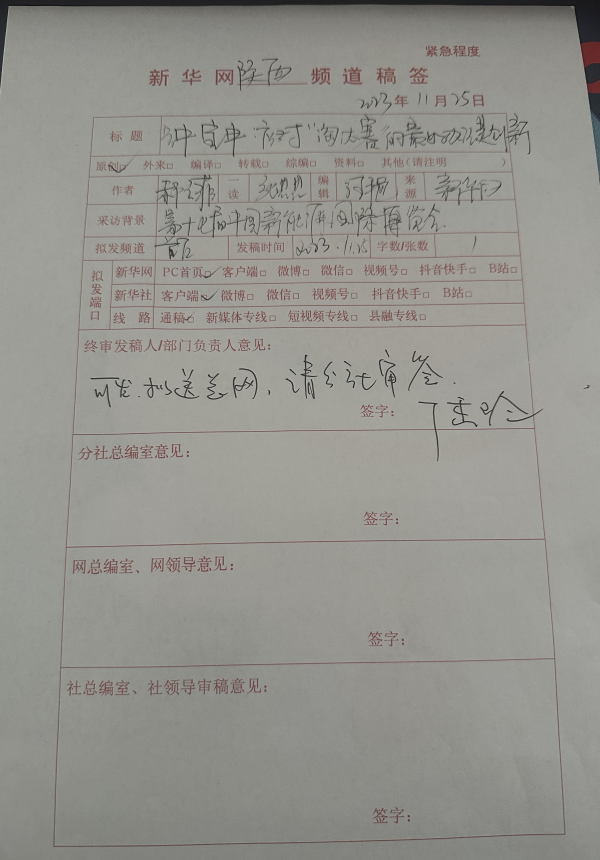 紧急程度
新华网陕西频道稿签
2023年11月25日
标题 对"淘大赛的最好办法是创新
原创☑ 外来□ 编译□ 转载□ 综编□ 资料□ 其他(请注明 )
作者 一读 编辑 来源 新华网
采访背景 第十七届中国新能源国际博览会
拟发频道 首页 发稿时间 2023.11.25 字数/张数 1
拟发端口
新华网 PC首页☑ 客户端□ 微博□ 微信□ 视频号□ 抖音快手□ B站□
新华社 客户端☑ 微博□ 微信□ 视频号□ 抖音快手□ B站□
线路 通稿☑ 新媒体专线□ 短视频专线□ 县融专线□
终审发稿人/部门负责人意见:
可发.拟送总网,请分社审签.
签字:
分社总编室意见:
签字:
网总编室、网领导意见:
签字:
社总编室、社领导审稿意见:
签字: